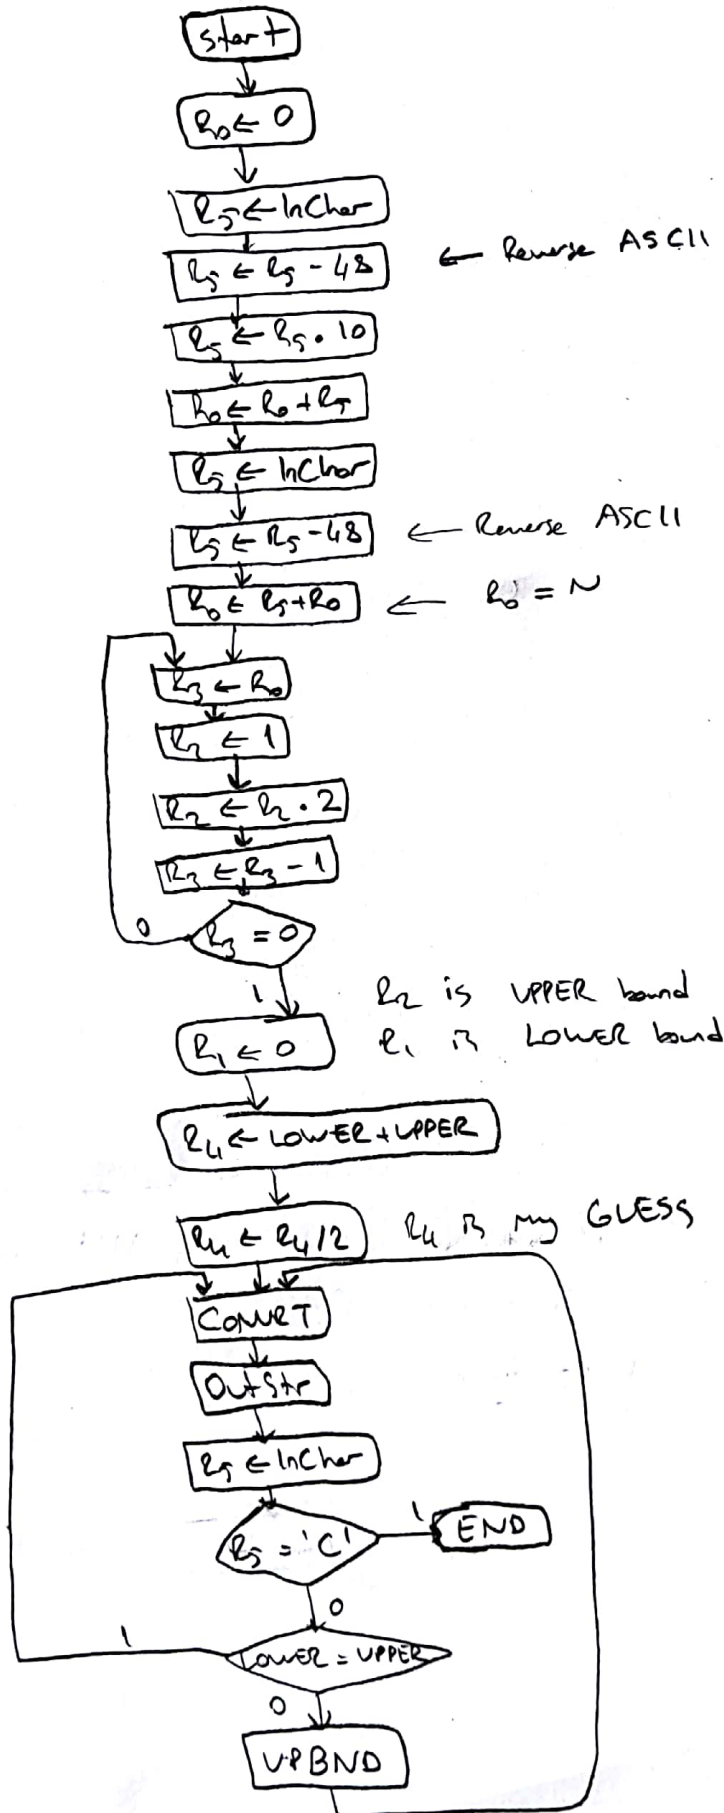 start
R0 ← 0
R5 ← InChar
R5 ← R5 - 48 ← Reverse ASCII
R5 ← R5 . 10
R0 ← R0 + R5
R5 ← InChar
R5 ← R5 - 48 ← Reverse ASCII
R0 ← R5 + R0 ← R0 = N
R3 ← R0
R2 ← 1
R2 ← R2 . 2
R3 ← R3 - 1
0 R3 = 0
1 R2 is UPPER bound
R1 ← 0 R1 is LOWER bound
R4 ← LOWER + UPPER
R4 ← R4 / 2 R4 is my GUESS
CONVRT
OutStr
R5 ← InChar
R5 = 'C' 1 END
0
1 LOWER = UPPER
0
UPBND